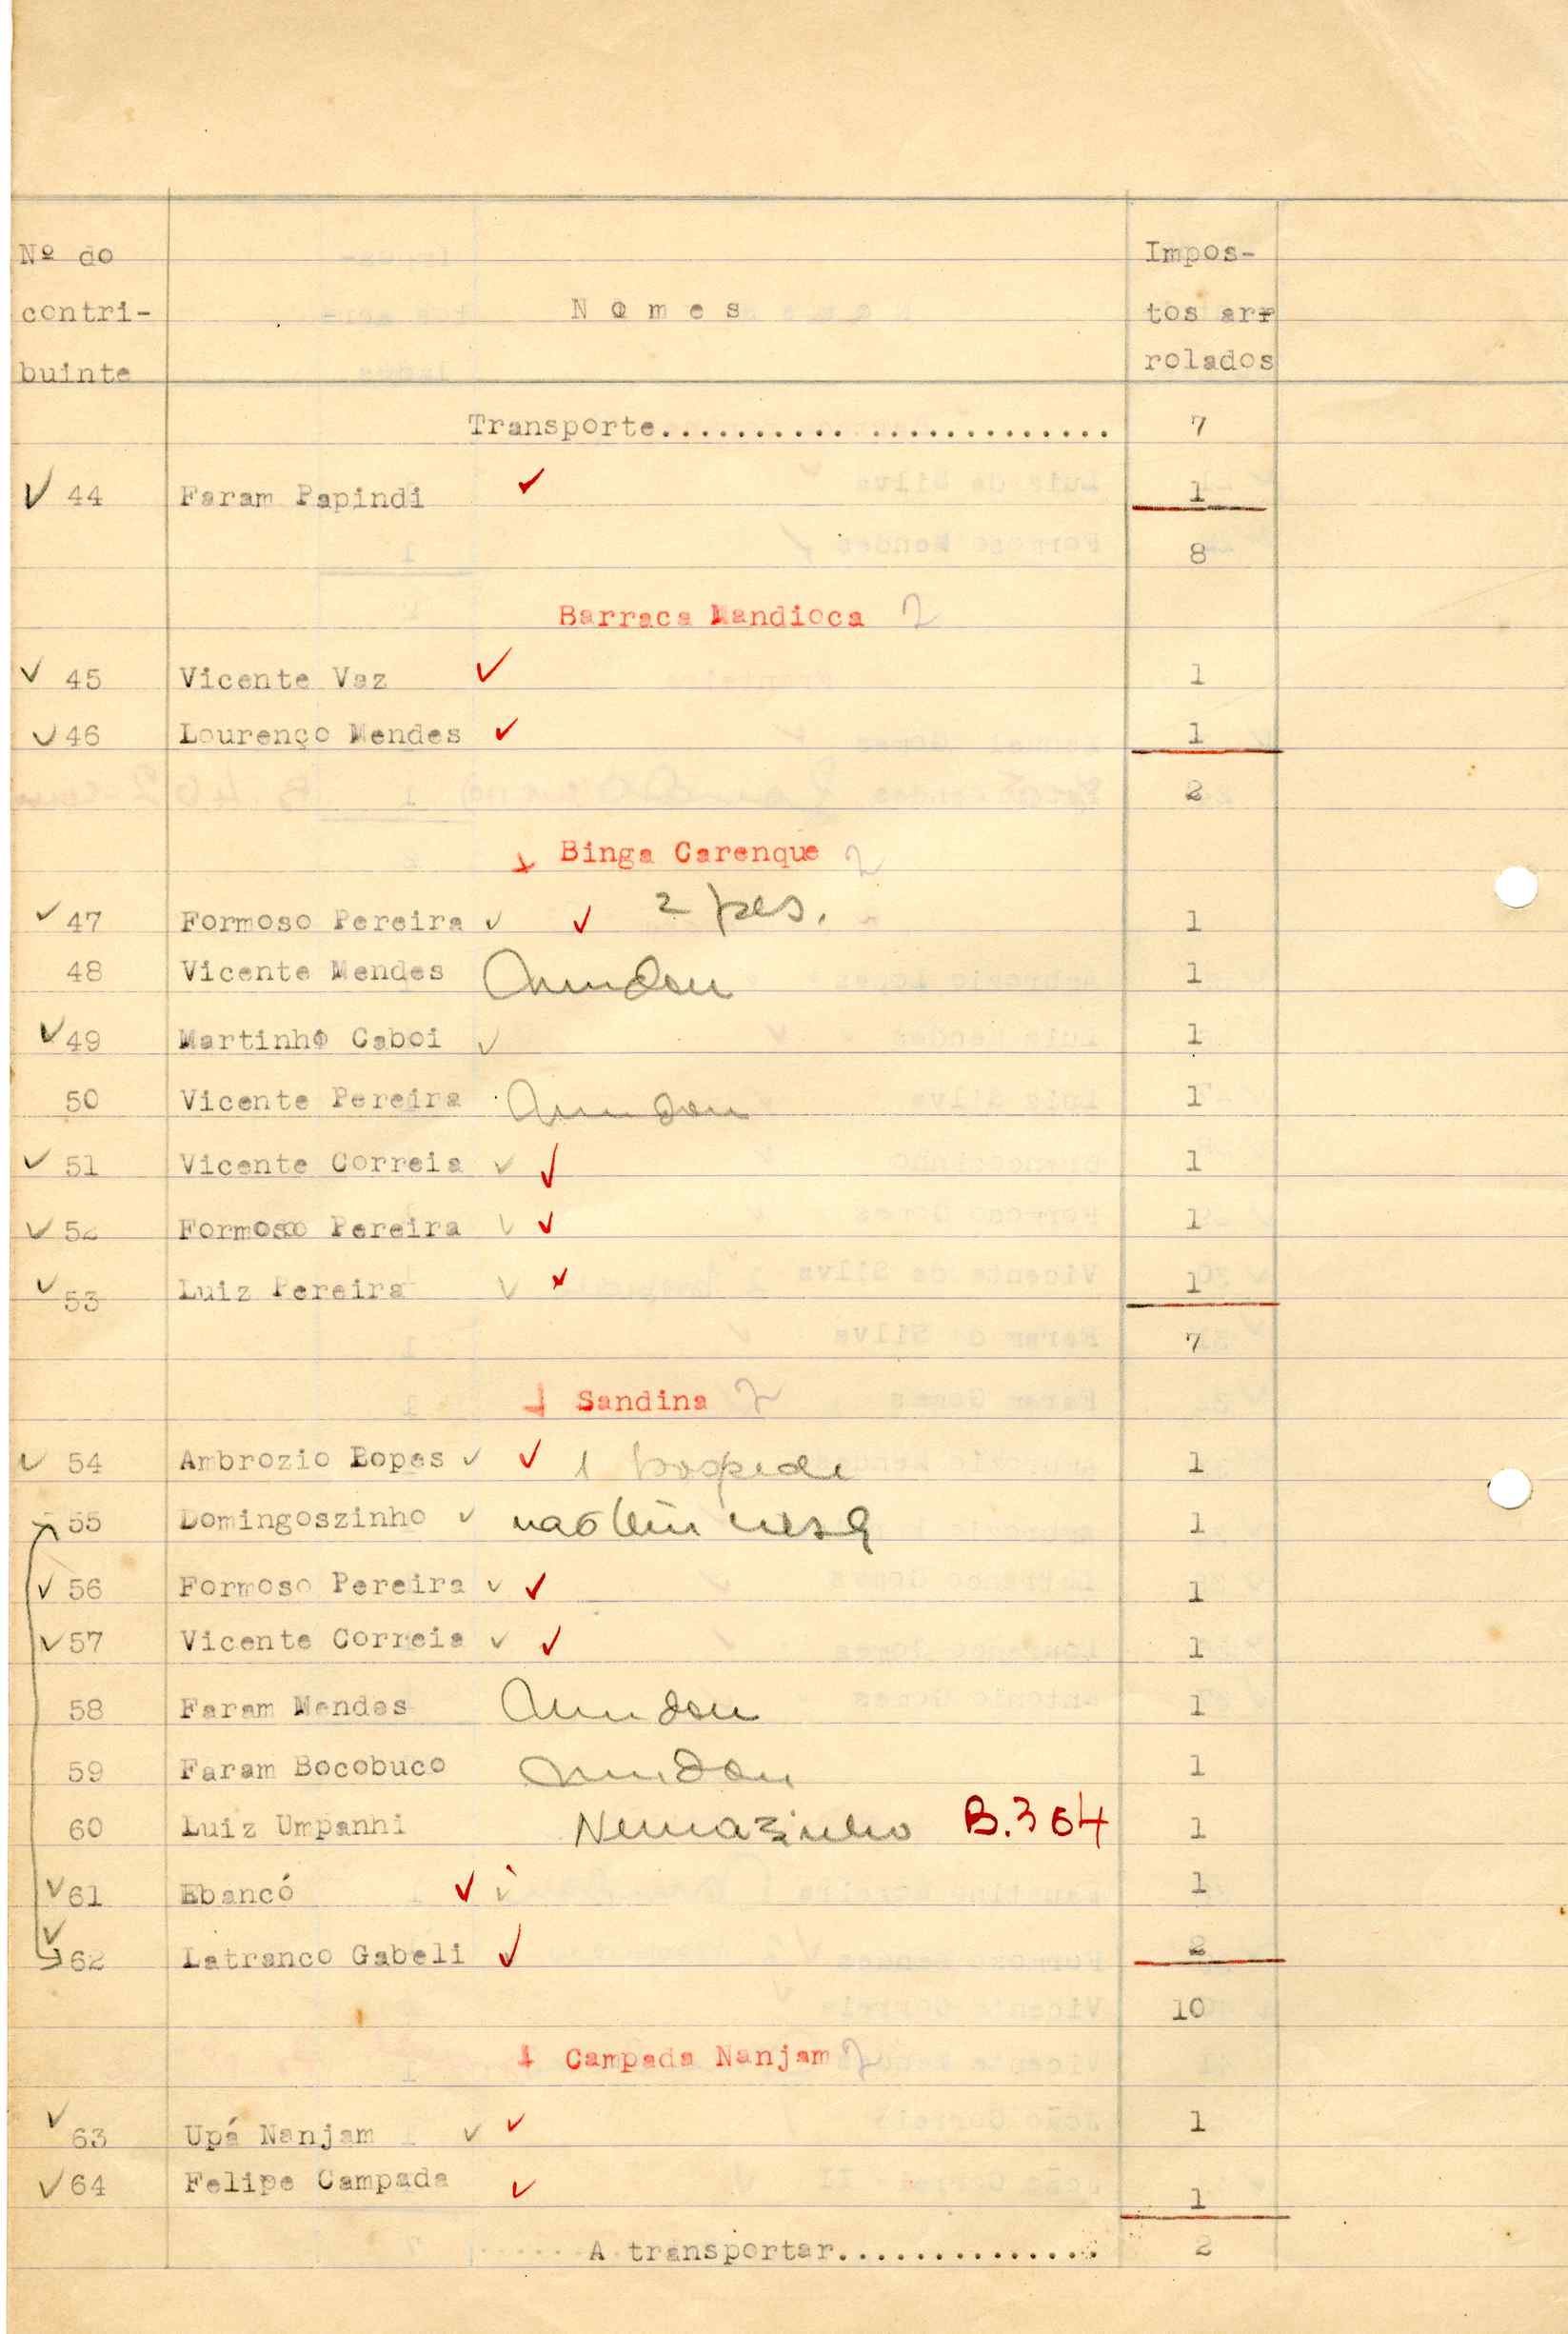 Nº do
contri-
buinte
Nomes
Impos-
tos arr
rolados
Transporte........................ 7
✓ 44 Faram Papindi ✓ 1
8
Barraca Mandioca
✓ 45 Vicente Vaz ✓ 1
✓ 46 Lourenço Mendes ✓ 1
2
Binga Carenque
✓ 47 Formoso Pereira ✓ ✓ 2 pes. 1
48 Vicente Mendes 1
✓ 49 Martinho Caboi ✓ 1
50 Vicente Pereira 1
✓ 51 Vicente Correia ✓ ✓ 1
✓ 52 Formoso Pereira ✓ ✓ 1
✓ 53 Luiz Pereira ✓ ✓ 1
7
Sandina
✓ 54 Ambrozio Lopes ✓ ✓ 1 hospede 1
55 Domingoszinho ✓ não tem 1
✓ 56 Formoso Pereira ✓ ✓ 1
✓ 57 Vicente Correia ✓ ✓ 1
58 Faram Mendes 1
59 Faram Bocobuco 1
60 Luiz Umpanhi B.364 1
✓ 61 Ebancó ✓ ✓ 1
✓ 62 Latranco Gabeli ✓ 2
10
Campada Nanjam
✓ 63 Upá Nanjam ✓ ✓ 1
✓ 64 Felipe Campada ✓ 1
A transportar.............. 2